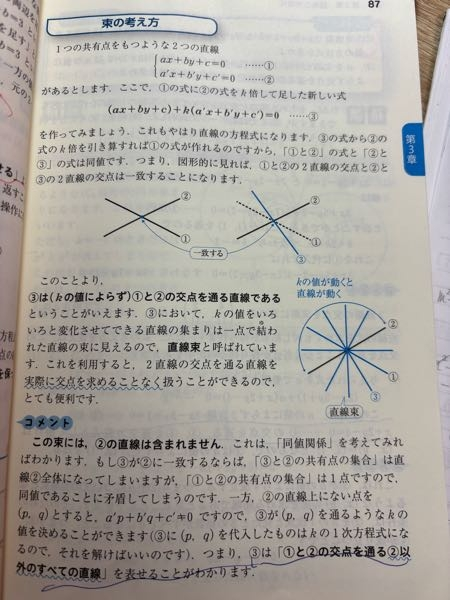 87
束の考え方
1つの共有点をもつような2つの直線
ax+by+c=0 ……①
a'x+b'y+c'=0 ……②
があるとします．ここで，①の式に②の式をk倍して足した新しい式
(ax+by+c)+k(a'x+b'y+c')=0 ……③
を作ってみましょう．これもやはり直線の方程式になります．③の式から②の
式のk倍を引き算すれば①の式が作れるのですから，「①と②」の式と「②と
③」の式は同値です．つまり，図形的に見れば，①と②の2直線の交点と②と
③の2直線の交点は一致することになります．
② ②
① 一致する ① ③
このことより，
③は(kの値によらず)①と②の交点を通る直線である
ということがいえます．③において，kの値をいろ
いろと変化させてできる直線の集まりは一点で結わ
れた直線の束に見えるので，直線束と呼ばれていま
す．これを利用すると，2直線の交点を通る直線を
実際に交点を求めることなく扱うことができるので，
とても便利です．
kの値が動くと
直線が動く
②
①
③
直線束
コメント
この束には，②の直線は含まれません．これは，「同値関係」を考えてみれ
ばわかります．もし③が②に一致するならば，「③と②の共有点の集合」は直
線②全体になってしまいますが，「①と②の共有点の集合」は1点ですので，
同値であることに矛盾してしまうのです．一方，②の直線上にない点を
(p, q)とすると，a'p+b'q+c'≠0 ですので，③が(p, q)を通るようなkの
値を決めることができます(③に(p, q)を代入したものはkの1次方程式にな
るので，それを解けばいいのです)．つまり，③は「①と②の交点を通る②以
外のすべての直線」を表せることがわかります．
第3章